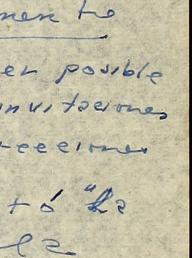 men to
er posible
invitaciones
recciones
tó "La
la